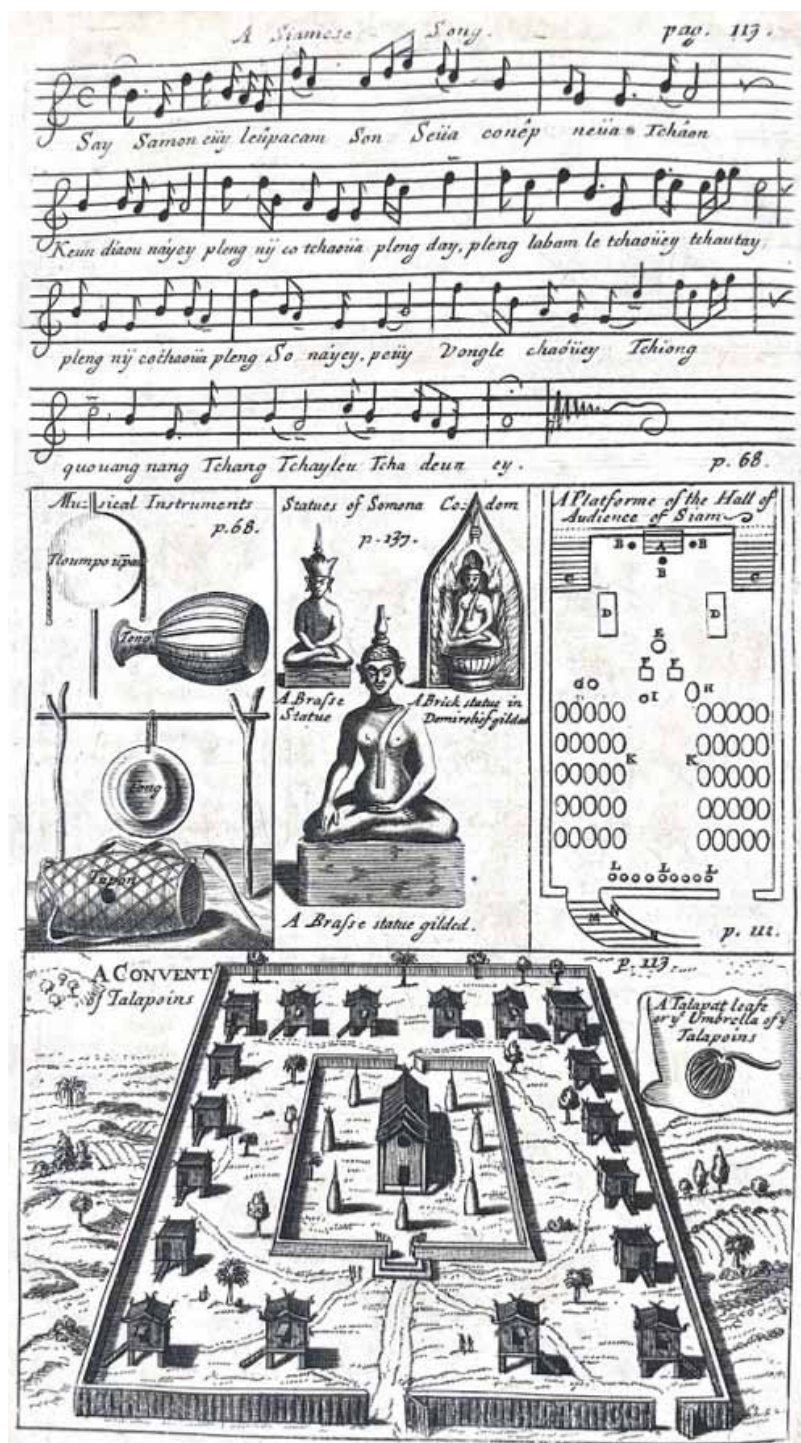 A Siamese Song. pag. 113.
Say Samon eüy leûpacam Son Seüa conêp neüa Tcháon
Keun diaou náyey pleng nij co tchaoüa pleng day, pleng labam le tchaoüey tchautay,
pleng nij cochaoüa pleng So náyey, peüy Vongle chaoüey Tchiong
quouang nang Tchang Tchayleu Tcha deun ey. p. 68.
Musical Instruments
p. 68.
Tong
Tong
Tapon
Statues of Somona Codom
p. 137.
A Brasse
Statue
A Brick statue in
Demirelief gilded
A Brasse statue gilded.
A Platforme of the Hall of
Audience of Siam
B A B
B
C C
D D
E
F F
G I H
K K
L L L
M N N
p. 111.
A CONVENT
of Talapoins
p. 113
A Talapat leafe
or yͤ Umbrella of yͤ
Talapoins